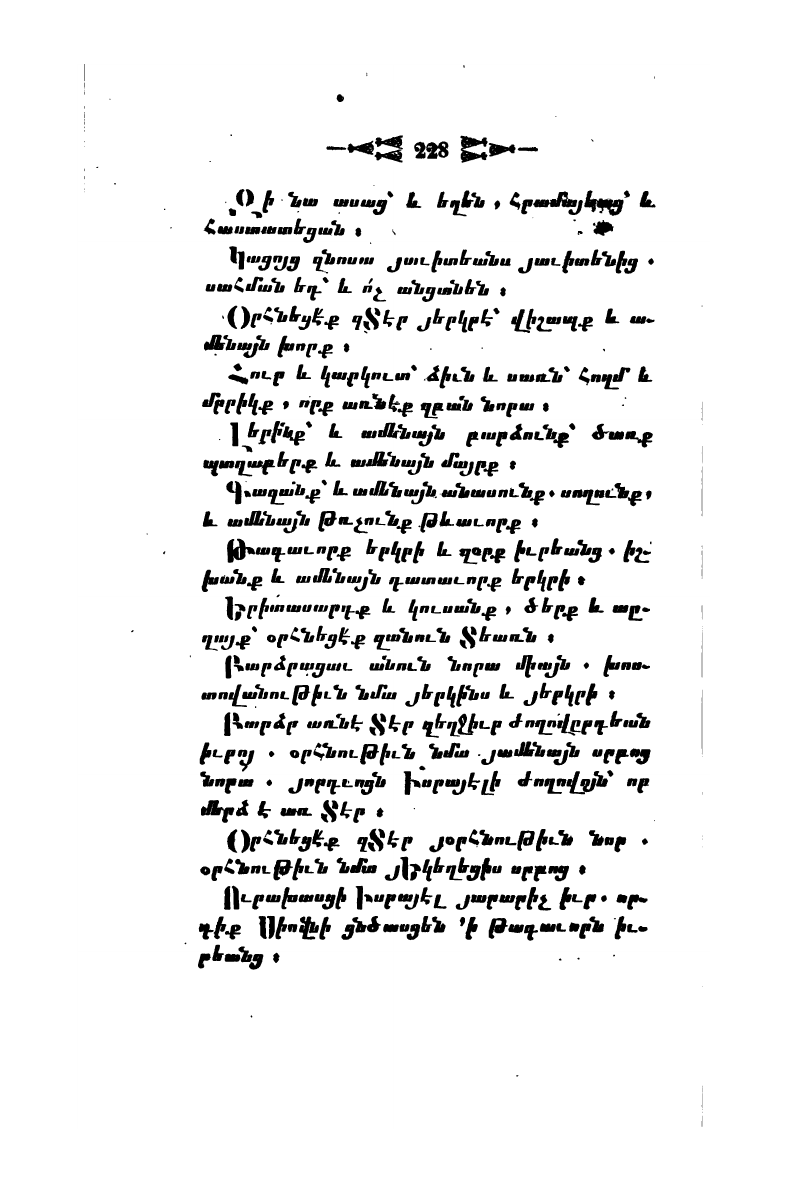 228
Զի նա ասաց՝ և եղեն, հրամայեաց՝ և
հաստատեցան ։
Կացոյց զնոսա յաւիտեանս յաւիտենից .
սահման եդ՝ և ո՛չ անցանեն ։
Օրհնեցէք զՏէր յերկրէ՝ վիշապք և ա-
մենայն խորք ։
Հուր և կարկուտ՝ ձիւն և սառն՝ հողմ և
մրրիկք, որք առնէք զբան նորա ։
Լերինք՝ և ամենայն բարձունք՝ ծառք
պտղաբերք և ամենայն մայրք ։
Գազանք՝ և ամենայն անասունք. սողունք,
և ամենայն թռչունք թևաւորք ։
Թագաւորք երկրի և զօրք իւրեանց . իշ-
խանք և ամենայն դատաւորք երկրի ։
Երիտասարդք և կուսանք, ծերք և աը-
ղայք՝ օրհնեցէք զանուն Տեառն ։
Բարձրացաւ անուն նորա միայն . խոս-
տովանութիւն նմա յերկինս և յերկրի ։
Բարձր առնէ Տէր զեղջիւր ժողովըրդեան
իւրոյ . օրհնութիւն նմա յամենայն սրբոց
նորա . յորդւոցն Իսրայէլի ժողովոյն՝ որ
մերձ է առ Տէր ։
Օրհնեցէք զՏէր յօրհնութիւն նոր .
օրհնութիւն նմա յԵկեղեցիս սրբոց ։
Ուրախասցի Իսրայէլ յարարիչ իւր. որ-
դիք Սիովնի ցնծասցեն ՚ի թագաւորն իւ-
րեանց ։